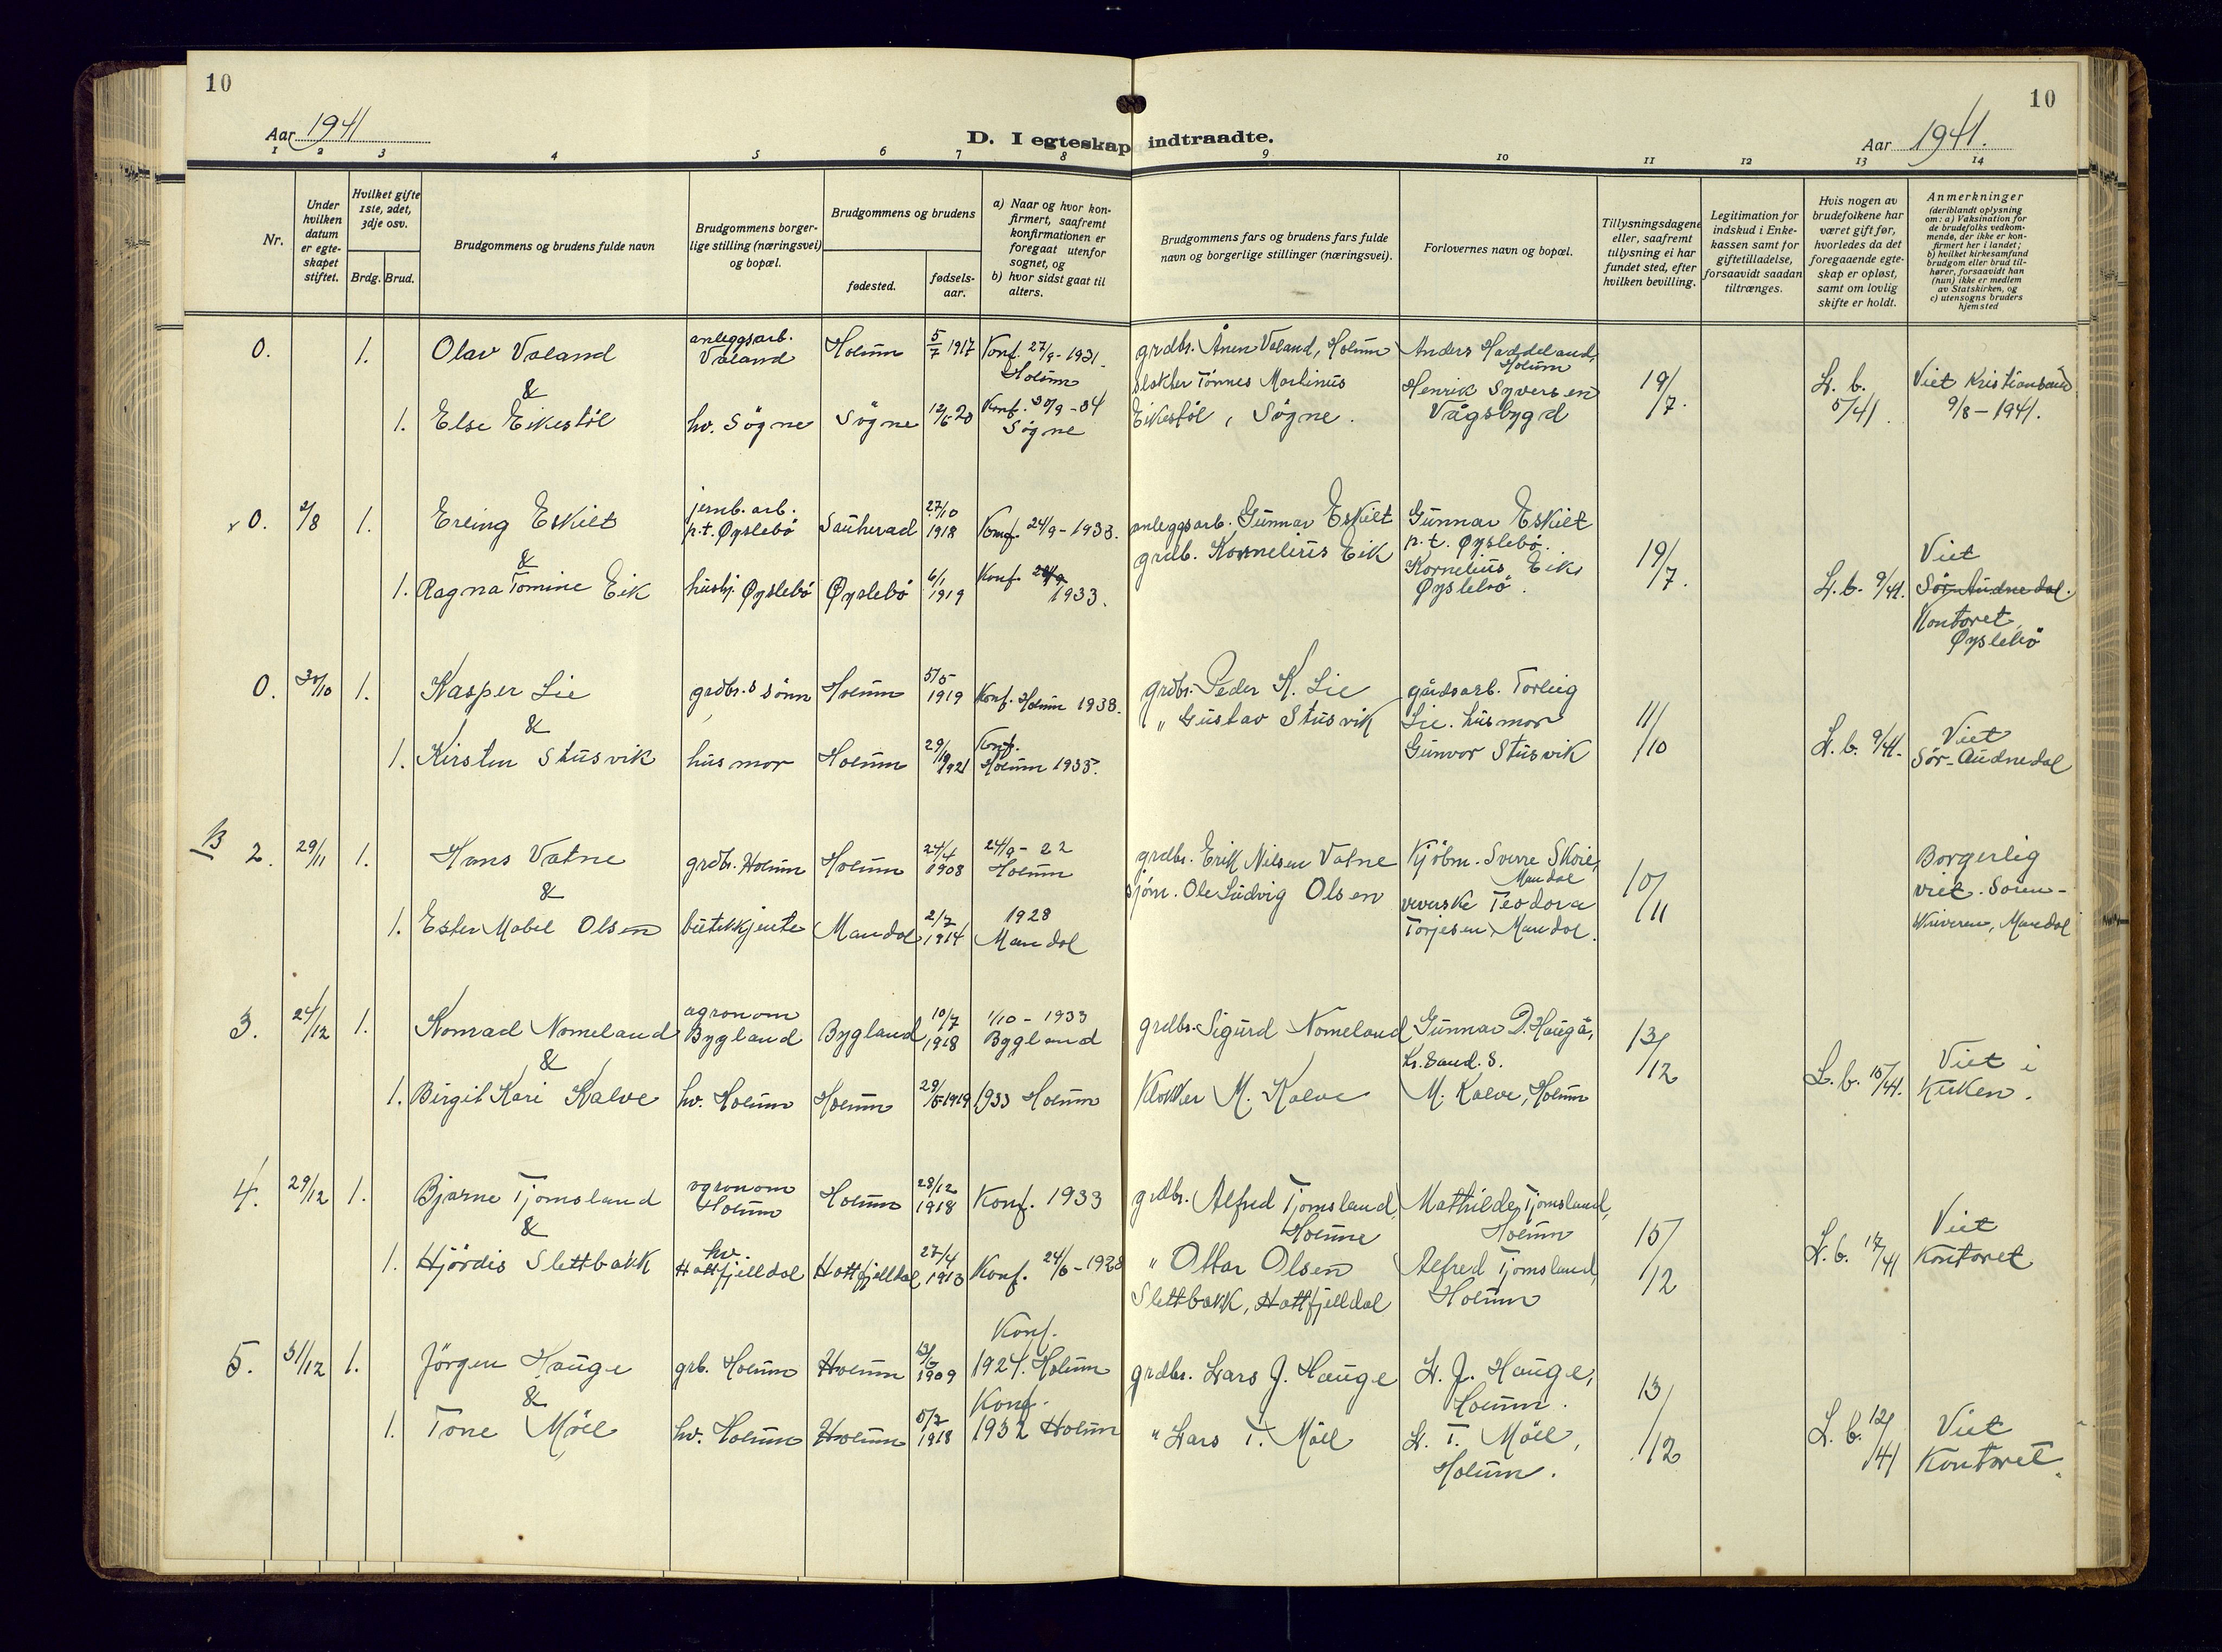 10
10
Aar 1941
D. I egteskap indtraadte.
Aar 1941.
1 2 3 4 5 6 7 8 9 10 11 12 13 14
Nr.
Under hvilken datum er egte-skapet stiftet.
Hvilket gifte 1ste, 2det, 3dje osv.
Brdg. Brud.
Brudgommens og brudens fulde navn
Brudgommens borger-
lige stilling (næringsvei)
og bopæl.
Brudgommens og brudens
fødested.
fødsels-
aar.
a) Naar og hvor kon-
firmert, saafremt
konfirmationen er
foregaat utenfor
sognet, og
b) hvor sidst gaat til
alters.
Brudgommens fars og brudens fars fulde
navn og borgerlige stillinger (næringsvei).
Forlovernes navn og bopæl.
Tillysningsdagene
eller, saafremt
tillysning ei har
fundet sted, efter
hvilken bevilling.
Legitimation for
indskud i Enke-
kassen samt for
giftetilladelse,
forsaavidt saadan
tiltrænges.
Hvis nogen av
brudefolkene har
været gift før,
hvorledes da det
foregaaende egte-
skap er opløst,
samt om lovlig
skifte er holdt.
Anmerkninger
(deriblandt oplysning
om: a) Vaksination for
de brudefolks vedkom-
mende, der ikke er kon-
firmert her i landet;
b) hvilket kirkesamfund
brudgom eller brud til-
hører, forsaavidt han
(hun) ikke er medlem
av Statskirken, og
c) utensogns bruders
hjemsted
0. 1. Olav Valand anleggsarb. Valand Holum 5/7 1917 Konf. 27/9-1931. Holum
&
1. Else Eikestöl hv. Sögne Sögne 12/6 20 Konf. 30/9-34 Sögne
grdbr. Ånen Valand, Holum
slakter Tönnes Martinus
Eikestöl, Sögne.
Anders Haddeland,
Holum
Henrik Syversen
Vågsbygd
19/7.
L. b.
5/41.
Viet Kristiansand
9/8-1941.
x 0. 2/8 1. Erling Eskilt jernb. arb. p.t. Øyslebö Sauherad 27/10 1918 Konf. 24/9-1933.
&
1. Ragna Tomine Eik hushj. Øyslebö Øyslebö 6/1 1919 Konf. 24/9 1933.
anleggsarb. Gunnar Eskilt
grdb. Kornelius Eik
Gunnar Eskilt
p.t. Øyslebö.
Kornelius Eik,
Øyslebö.
19/7.
L. b. 9/41.
Viet
Sör-Audnedal.
Kontoret,
Øyslebö
0. 30/10 1. Kasper Lie grdbr.s sönn Holum 5/5 1919 Konf. Holum 1933.
&
1. Kirsten Stusvik husmor Holum 29/10 1921 Konf. Holum 1935.
grdbr. Peder K. Lie
" Gustav Stusvik
gårdsarb. Torleig
Lie. husmor
Gunvor Stusvik
11/10
L. b. 9/41.
Viet
Sör-Audnedal
B 2. 29/11 1. Hans Vatne grdbr. Holum Holum 24/4 1908 24/9-22 Holum
&
1. Ester Mabel Olsen butikkjente Mandal 2/7 1914 1928 Mandal
grdbr. Erik Nilsen Vatne
sjöm. Ole Ludvig Olsen
Kjöbm. Sverre Skoie,
Mandal
verske Teodora
Torjesen, Mandal.
10/11
Borgerlig
viet. Soren-
skriveren, Mandal
3. 24/12 1. Konrad Nomeland agronom Bygland Bygland 10/7 1918 1/10-1933 Bygland
&
1. Birgit Kari Kalve hv. Holum Holum 29/5 1919 1933 Holum
grdbr. Sigurd Nomeland
Klokker M. Kalve
Gunnar D. Haugå,
Kr.sand. S.
M. Kalve, Holum
13/12
L. b. 15/41.
Viet i
Kirken.
4. 29/12 1. Bjarne Tjomsland agronom Holum Holum 28/12 1918 Konf. 1933
&
1. Hjördis Slettbakk hv. Hattfjelldal Hattfjelldal 27/4 1913 Konf. 24/6-1928
grdbr. Alfred Tjomsland,
Holum
" Ottar Olsen
Slettbakk, Hattfjelldal
Mathilde Tjomsland,
Holum
Alfred Tjomsland,
Holum
15/12
L. b. 17/41
Viet
Kontoret
5. 31/12 1. Jörgen Hauge grb. Holum Holum 1909 Konf. 1924. Holum
&
1. Tone Möll hv. Holum Holum 5/7 1918 Konf. 1932 Holum
grdbr. Lars J. Hauge
" Lars T. Möll
L. J. Hauge,
Holum.
L. T. Möll,
Holum.
13/12
L. b. 12/41
Viet
Kontoret.